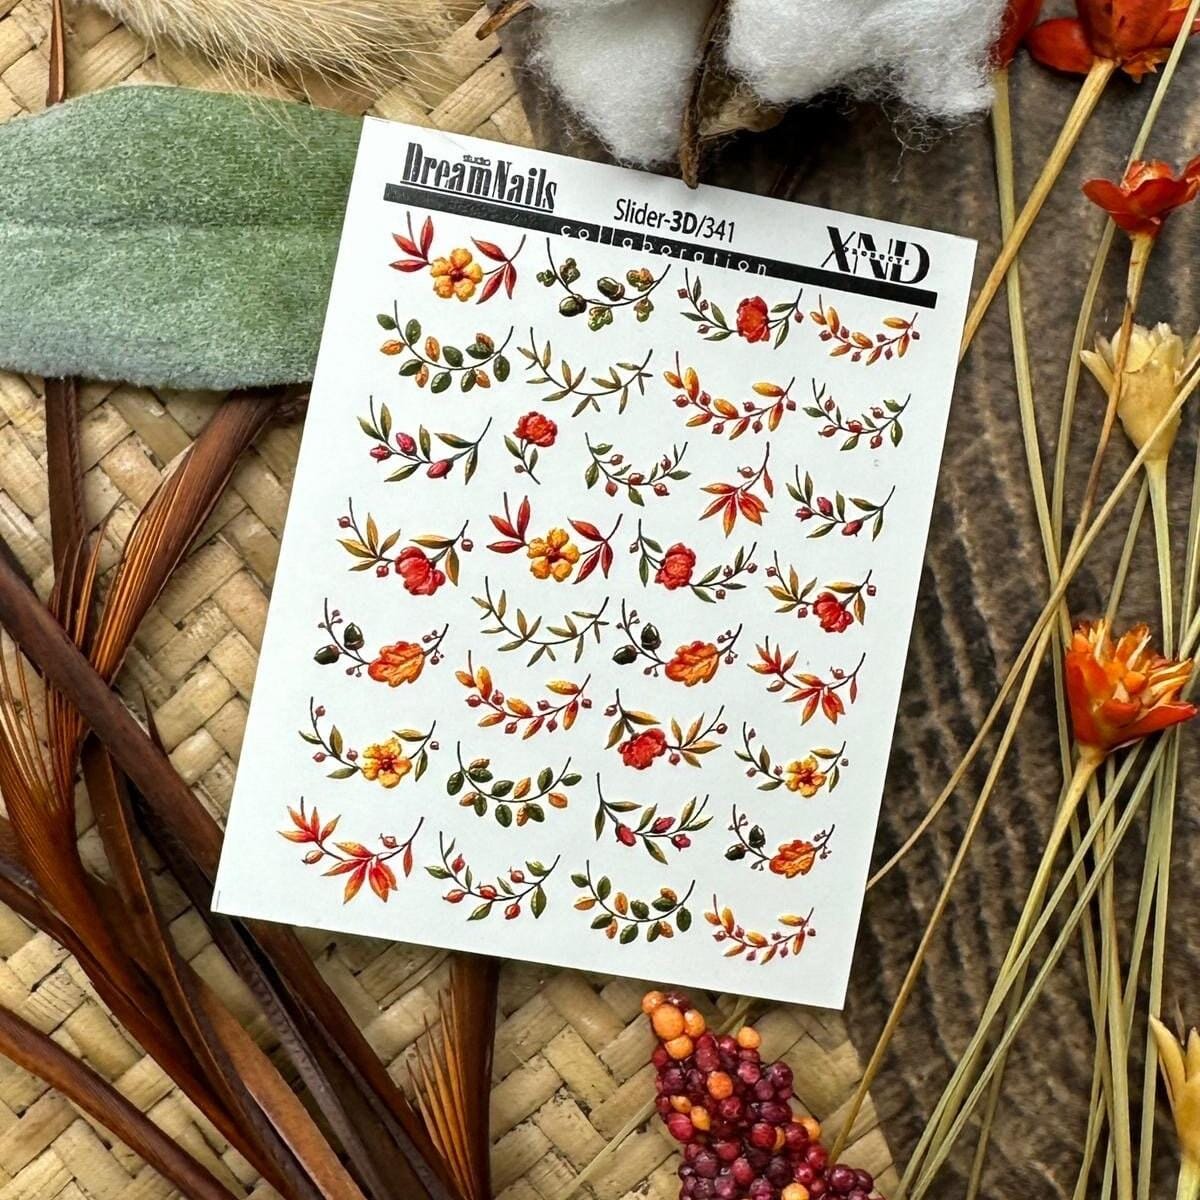 studio
DreamNails
Slider-3D/341
collaboration
XND
PRODUCTS